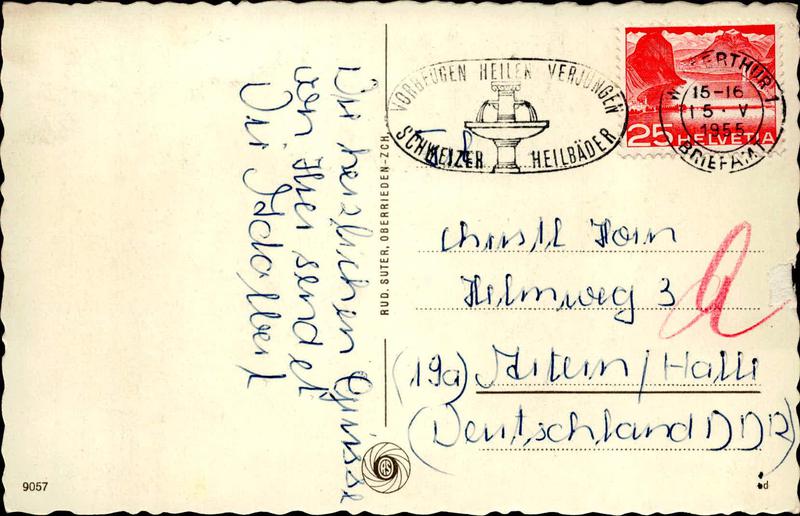 Die herzlichen Grüsse
von hier sendet
Dir Adalbert
RUD. SUTER, OBERRIEDEN-ZCH.
9057
VORBEUGEN HEILEN VERJÜNGEN
SCHWEIZER HEILBÄDER
WINTERTHUR 1
15-16
15 V
1955
BRIEFAM
25 HELVETIA
Frl.
Christl Horn
Helmweg 3
(19a) Artern/Halle
(Deutschland DDR)
RS
d